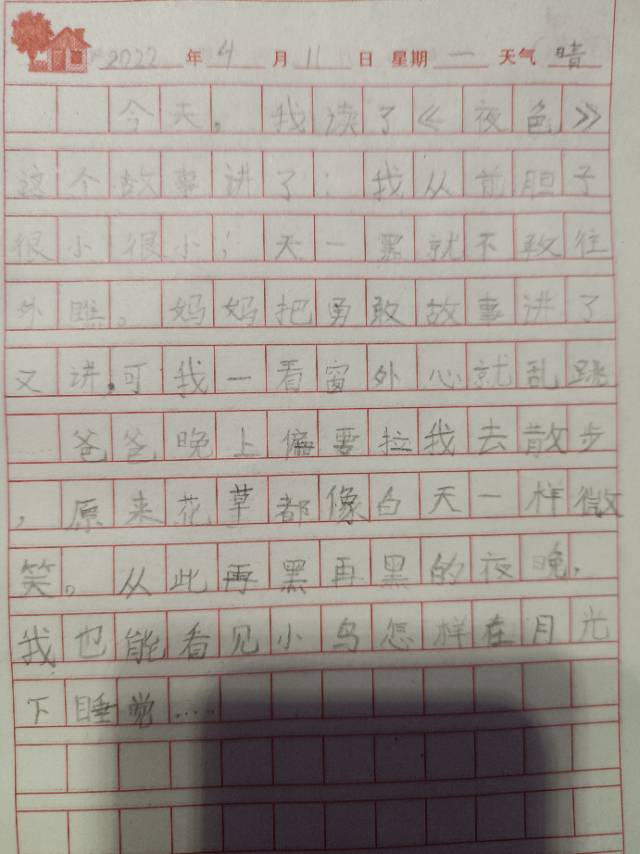 2022年4月11日 星期一 天气晴
今天，我读了《夜色》
这个故事讲了：我从前胆子
很小很小；天一黑就不敢往
外瞧。妈妈把勇敢故事讲了
又讲.可我一看窗外心就乱跳
爸爸晚上偏要拉我去散步
，原来花草都像白天一样微
笑。从此再黑再黑的夜晚，
我也能看见小鸟怎样在月光
下睡觉....